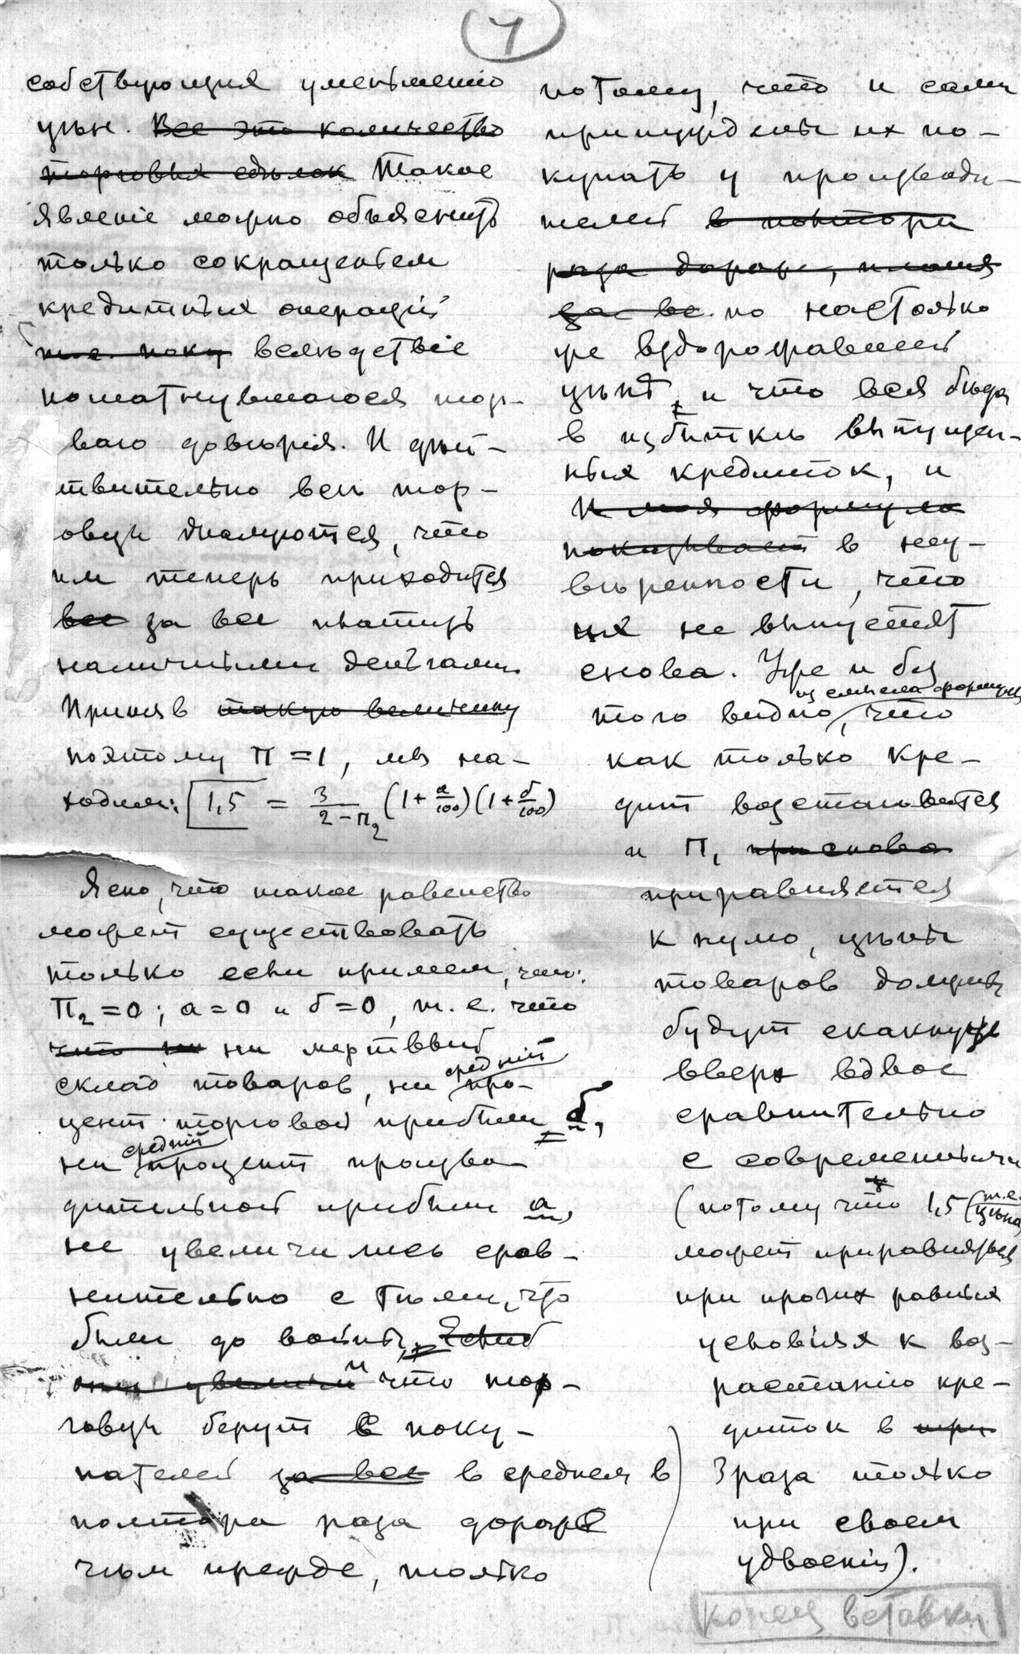 7
собствующия уменьшенію
цѣн. Все это количество
торговыя сдѣлок Такое
явленіе можно объяснить
только сокращеніем
кредитных операцій
т.е. вслѣдствіе
пошатнувшагося тор-
ваго довѣрія. И дѣй-
твительно всѣ тор-
овцы жалуются, что
им теперь приходится
все за все платить
наличными деньгами.
Приняв такую величину
поэтому П = 1, мы на-
ходим: 1,5 = 3/(2-П₂) (1+а/100)(1+б/100)
Ясно, что такое равенство
может существовать
только если примем, что:
П₂=0; а=0 и б=0, т.е. что
что ни ни мертввый
склад товаров, ни средній про-
цент торговой прибыли б,
ни средній процент произво-
дительной прибыли а,
не увеличились срав-
нительно с тѣм, что
были до войны,
они увеличи и что тор-
говцы берут с поку-
пателей за все в среднем в
полтора раза дороже
чѣм прежде, только
потому, что и сами
принуждены их по-
купать у производи-
телей в полтора
раза дороже,
за все по настолько
же вздорожавшей
цѣнѣ, и что вся бѣда
в избыткѣ выпущен-
ныя кредиток, и
И моя формула
показывает в неу-
вѣренности, что
их не выпустят
снова. Уже и без
из смысла формулы
того видно, что
как только кре-
дит возстановится
и П, при снова
приравняется
к нулю, цѣны
товаров должны
будут скакнуть
вверх вдвое
сравнительно
с современными
(потому что 1,5 (т.е. цѣна)
может приравняться
при прочих равных
условіях к воз-
растанію кре-
диток в три
3 раза только
при своем
удвоеніи).
конец вставки